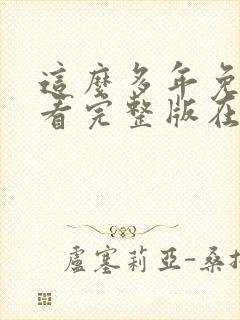 這麼多年免
看完整版在
盧塞莉亞-桑擔